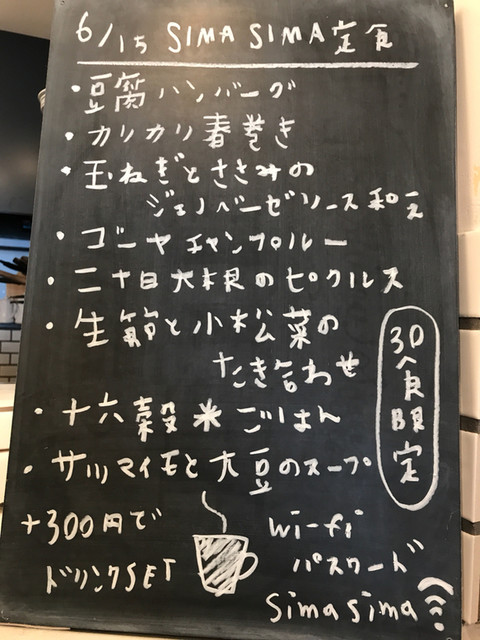 6/15 SIMA SIMA定食
・豆腐ハンバーグ
・カリカリ春巻き
・玉ねぎとささみの
ジェノベーゼソース和え
・ゴーヤチャンプルー
・二十日大根のピクルス
・生節と小松菜の
たき合わせ
・十六穀米ごはん
・サツマイモと大豆のスープ
30食限定
+300円で
ドリンクSET
wi-fi
パスワード
simasima